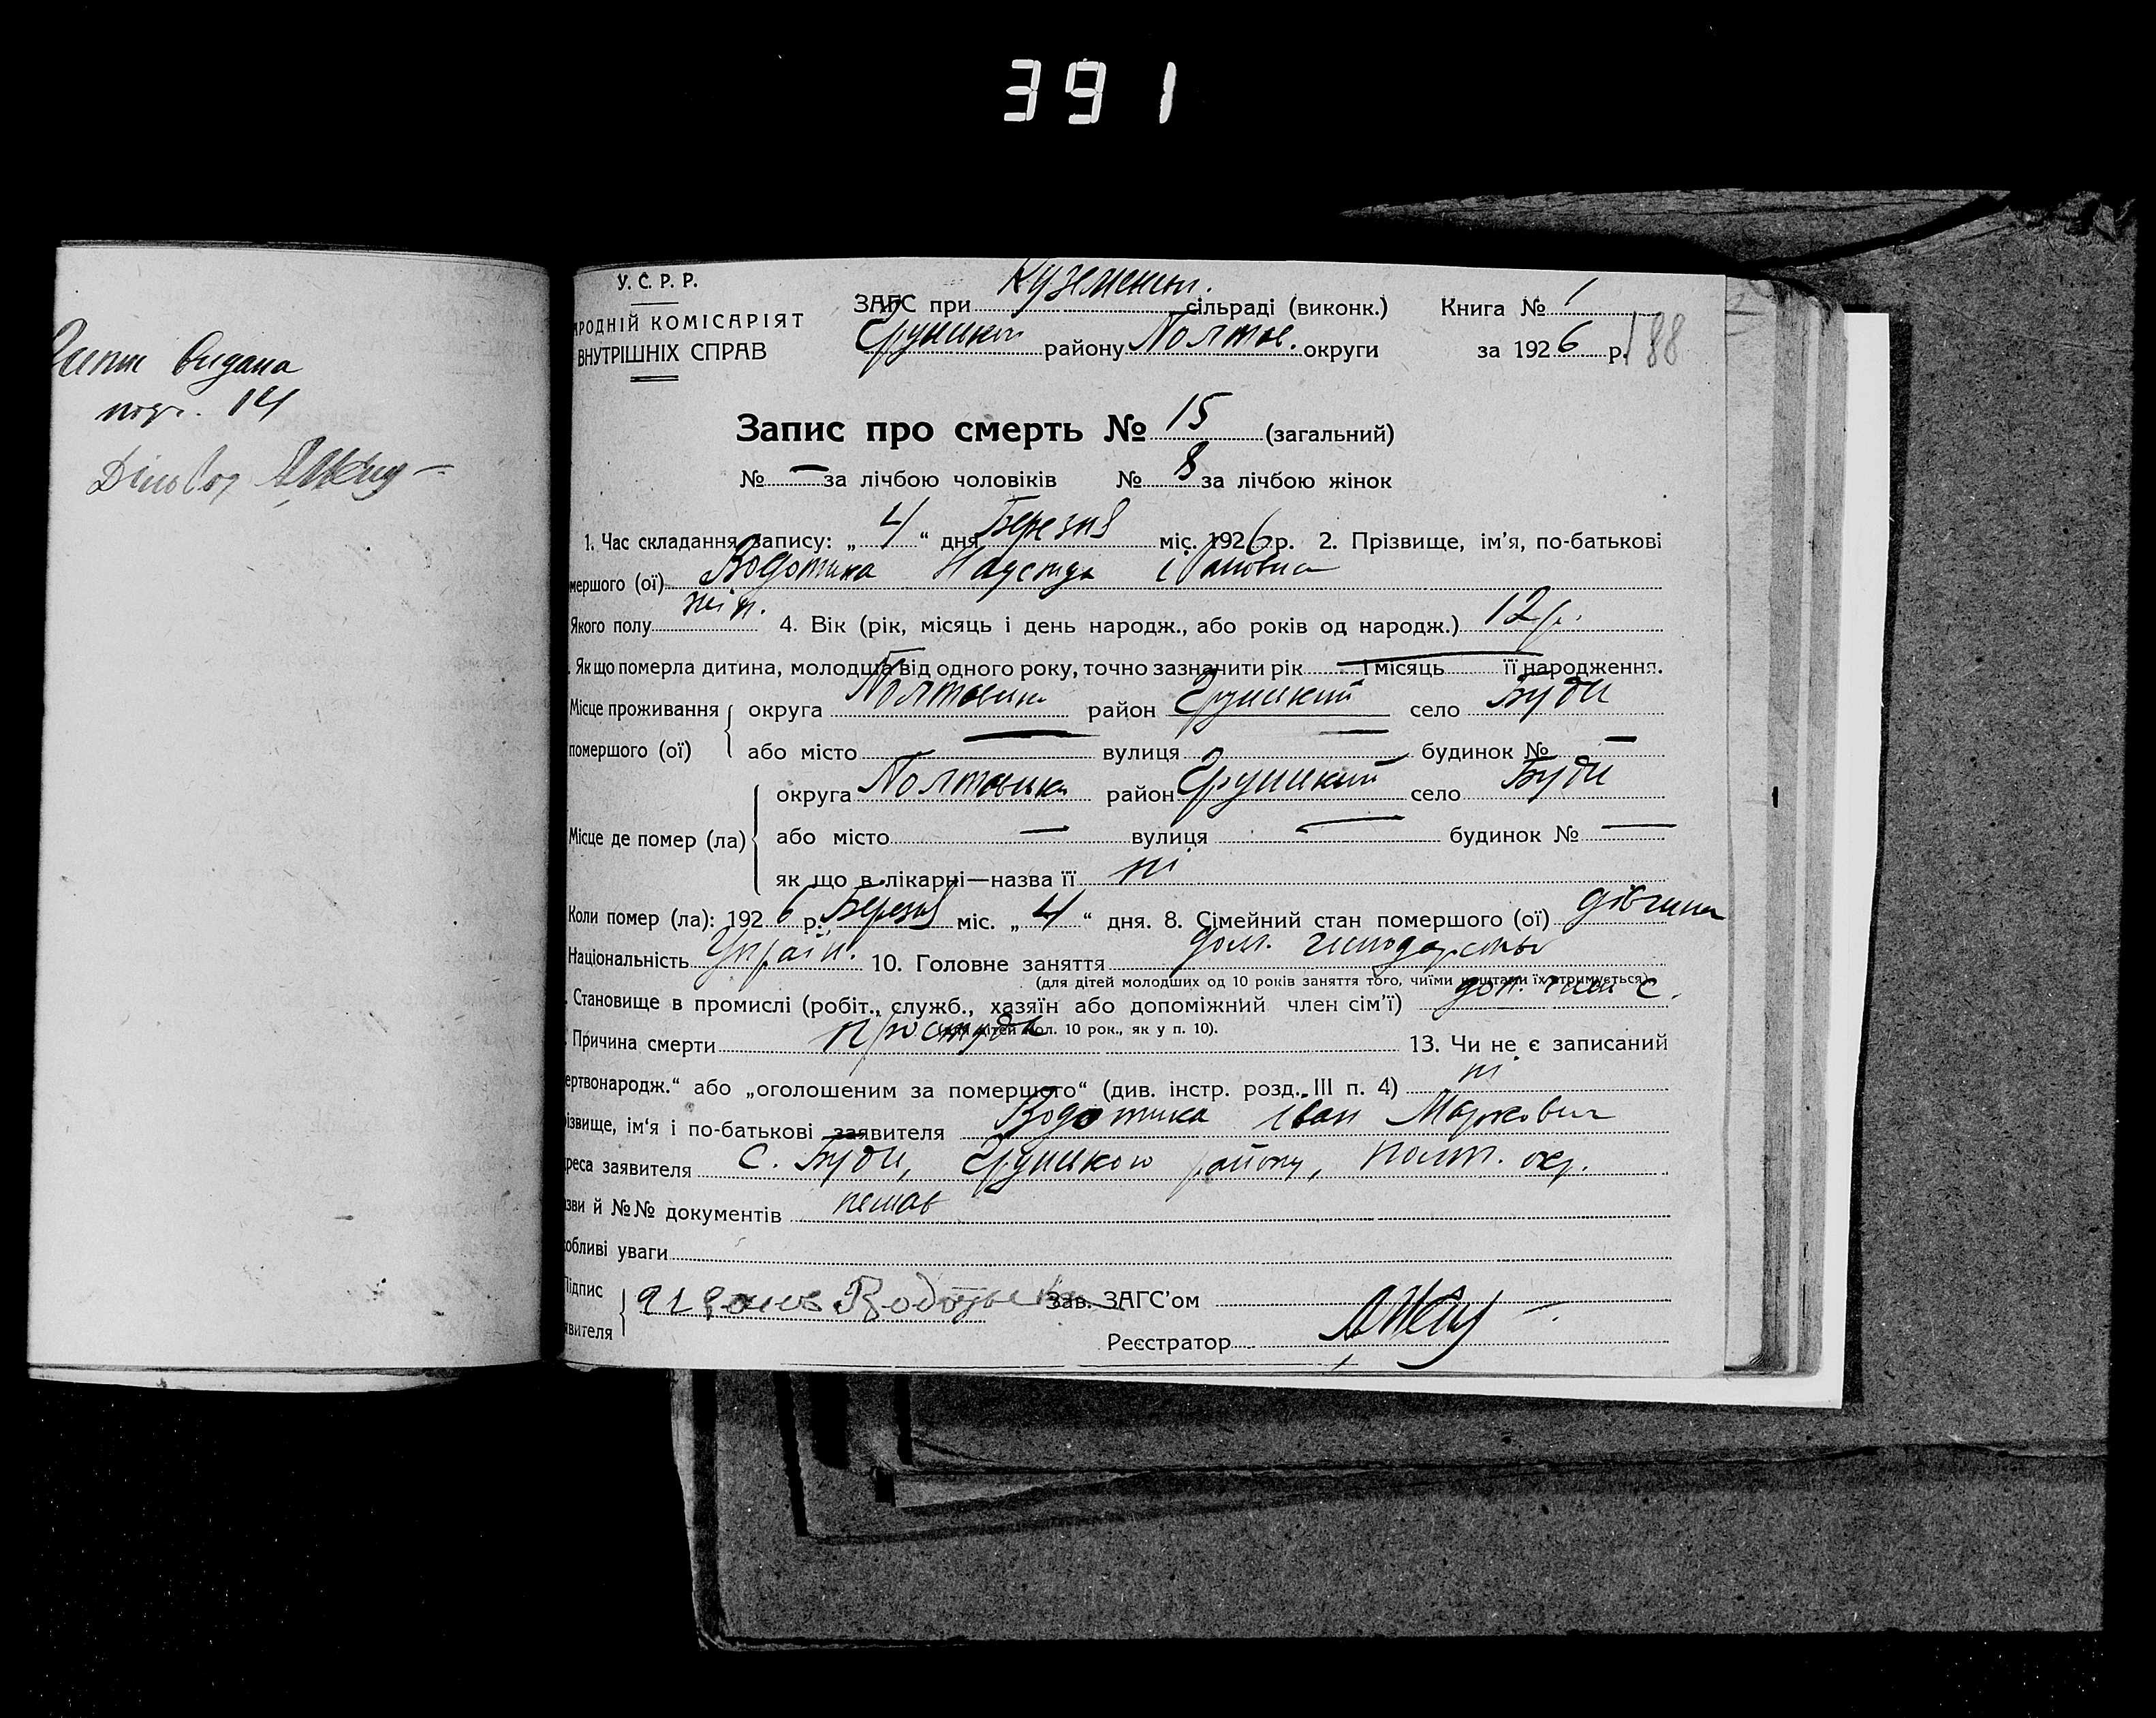 391
видана
14
У. С. Р. Р.
РОДНІЙ КОМІСАРІЯТ
ВНУТРІШНІХ СПРАВ
ЗАГС при Куземенськ. сільраді (виконк.) Книга № 1
Груньський району Полтав. округи за 1926 р. 188
Запис про смерть № 15 (загальний)
№ — за лічбою чоловіків № 8 за лічбою жінок
1. Час складання запису: „ 4 “ дня Березня міс. 1926 р. 2. Прізвище, ім'я, по-батькові
мершого (ої) Водотика Надежда Івановна
Якого полу жін. 4. Вік (рік, місяць і день народж., або років од народж.) 12 р.
. Як що померла дитина, молодша від одного року, точно зазначити рік — і місяць її народження.
Місце проживання округа Полтавська район Груньський село Буди
помершого (ої) або місто — вулиця — будинок № —
округа Полтавська район Груньський село Буди
Місце де помер (ла) або місто — вулиця — будинок № —
як що в лікарні—назва її ні
Коли помер (ла): 1926 р. Березня міс. „ 4 “ дня. 8. Сімейний стан помершого (ої) дівчина
Національність Україн. 10. Головне заняття дом. господарство
(для дітей молодших од 10 років заняття того, чиїми коштами їх отримується)
. Становище в промислі (робіт., служб., хазяїн або допоміжний член сім'ї) доп. член с.
(для дітей мол. 10 рок., як у п. 10).
. Причина смерти простуда 13. Чи не є записаний
ертвонародж.“ або „оголошеним за помершого“ (див. інстр. розд. III п. 4) ні
ізвище, ім'я і по-батькові заявителя Водотика Іван Маркович
реса заявителя С. Буди, Груньского району, Полт. окр.
зви й №№ документів немає
обливі уваги
Підпис Водотика Зав. ЗАГС'ом
явителя Реєстратор